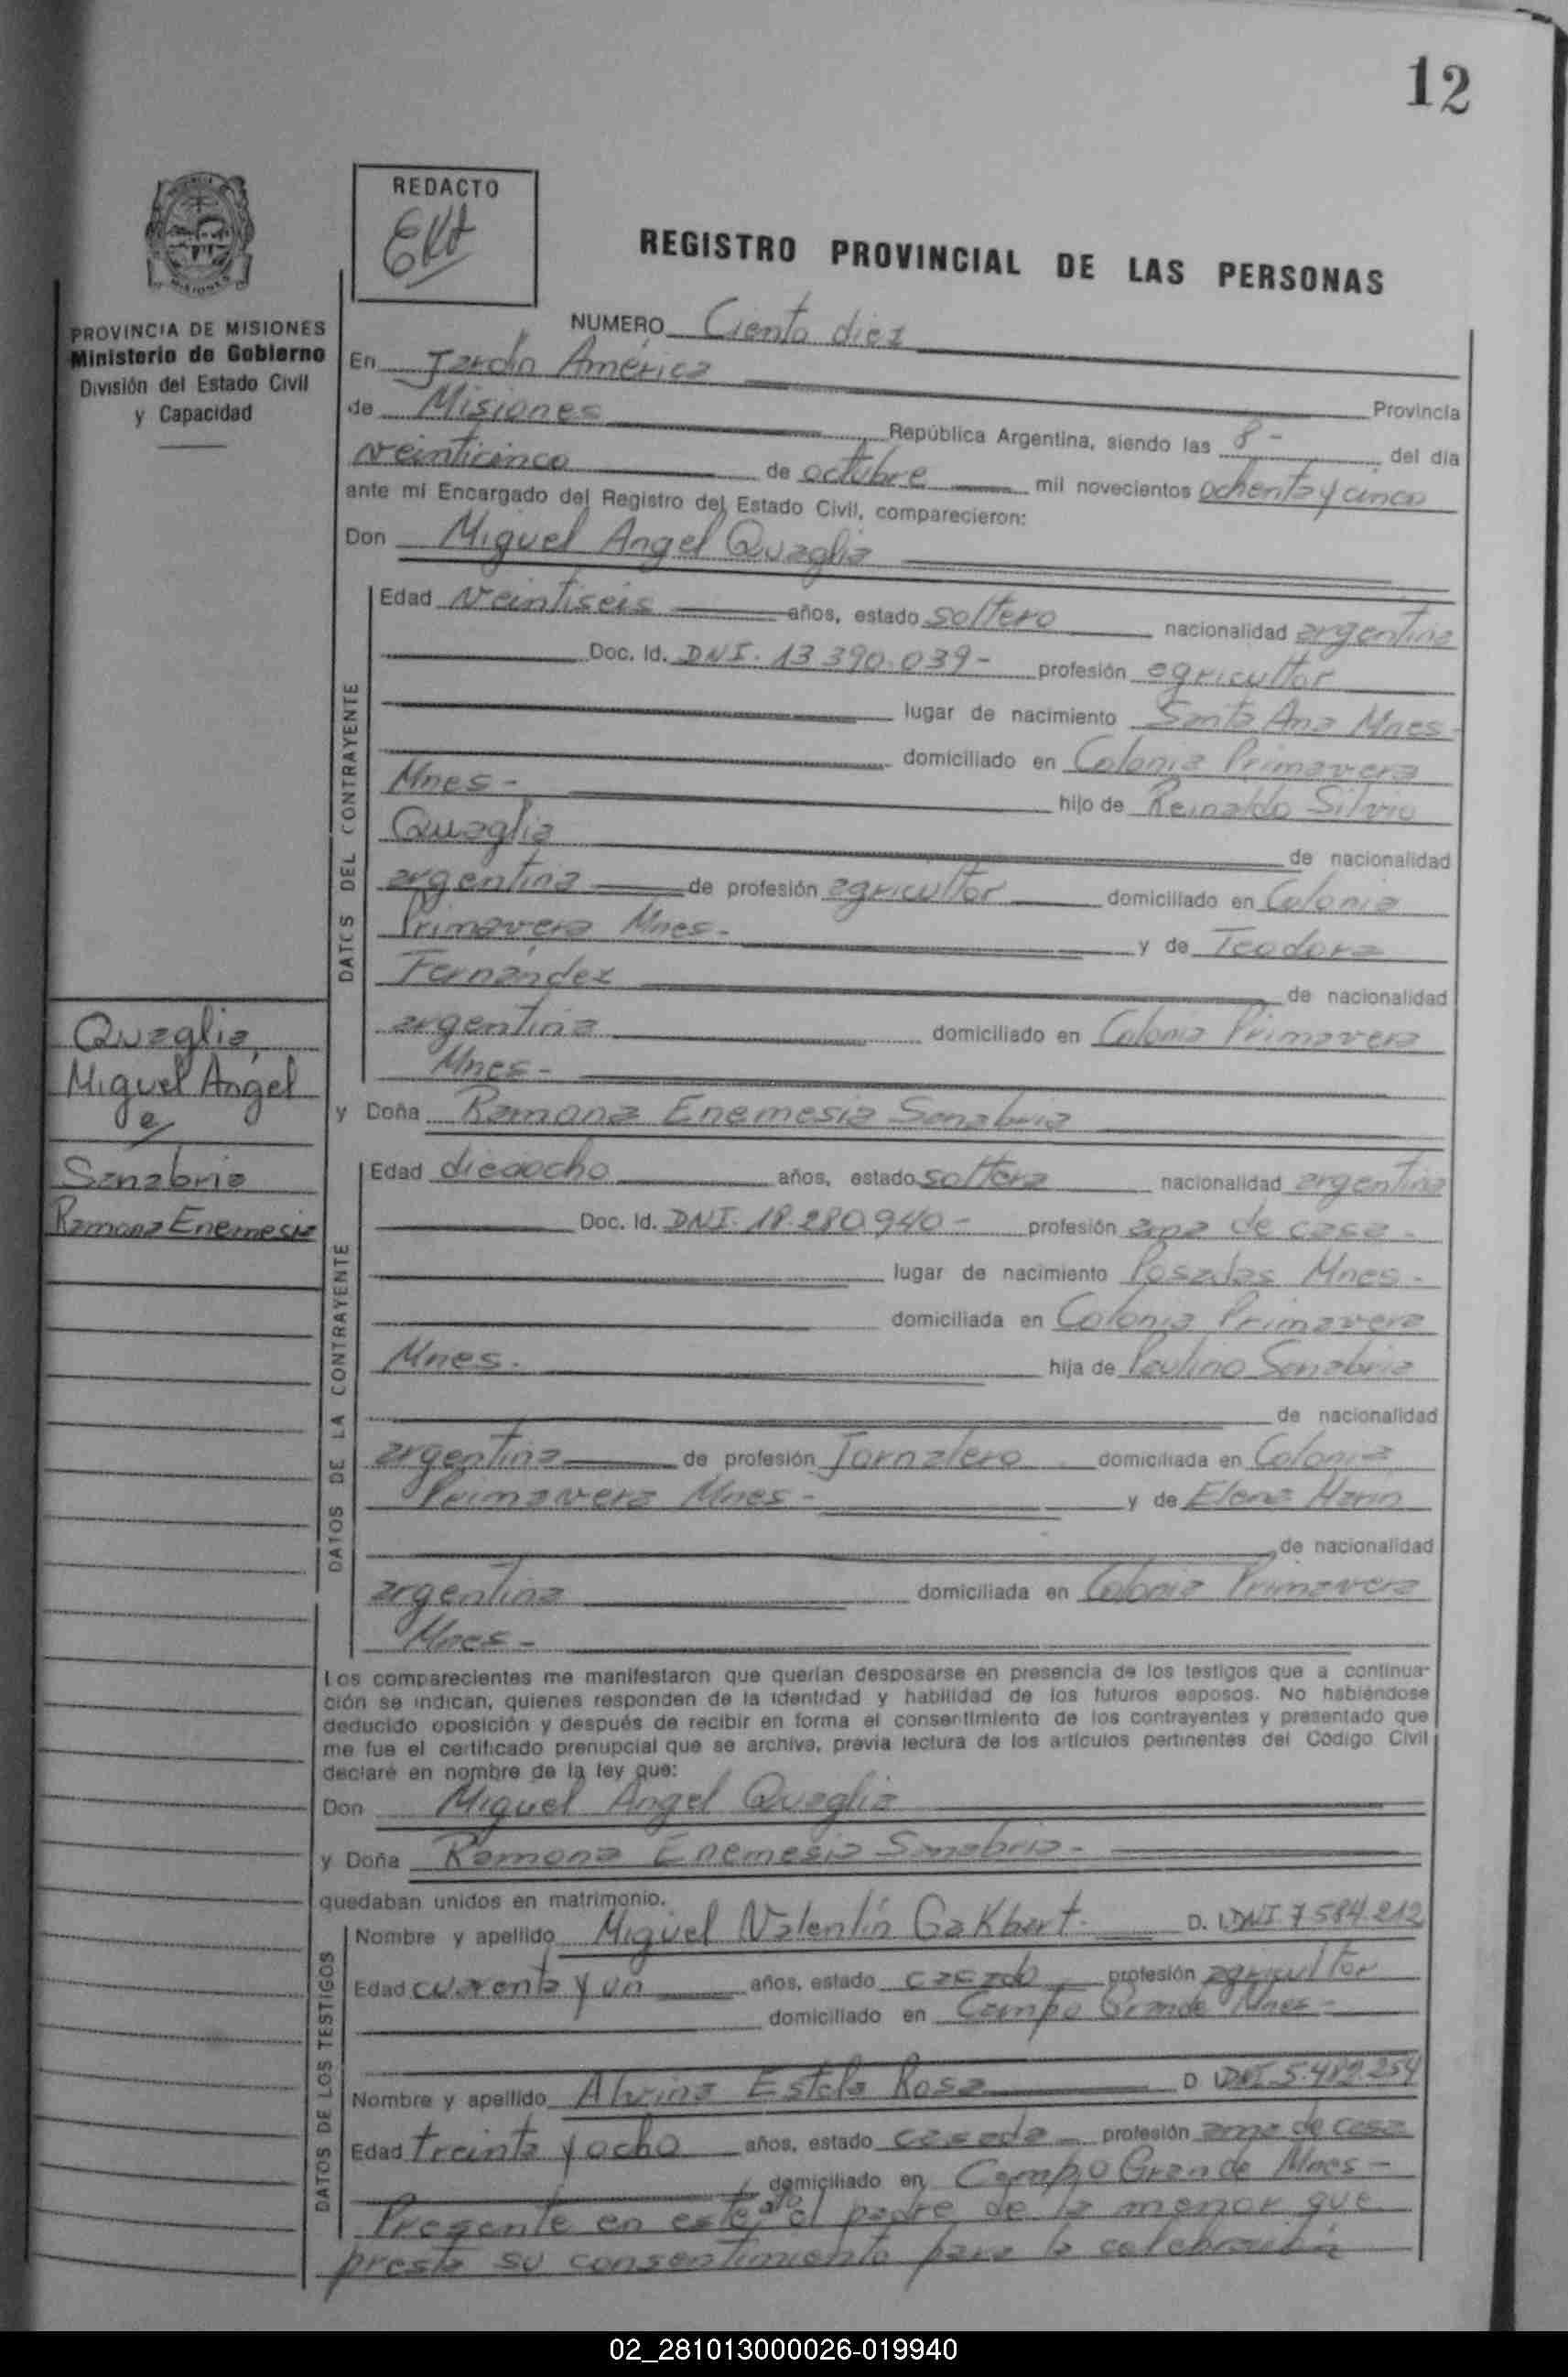 12
REDACTO
REGISTRO PROVINCIAL DE LAS PERSONAS
PROVINCIA DE MISIONES
Ministerio de Gobierno
División del Estado Civil
y Capacidad
NUMERO Ciento diez
En Jardín América Provincia
de Misiones República Argentina, siendo las 8- del día
veinticinco de octubre mil novecientos ochenta y cinco
ante mí Encargado del Registro del Estado Civil, comparecieron:
Don Miguel Angel Quaglia
DATOS DEL CONTRAYENTE
Edad veintiseis años, estado soltero nacionalidad argentina
Doc. Id. DNI. 13 390.039- profesión agricultor
lugar de nacimiento Santa Ana Mnes-
domiciliado en Colonia Primavera
Mnes- hijo de Reinaldo Silvio
Quaglia de nacionalidad
argentina de profesión agricultor domiciliado en Colonia
Primavera Mnes- y de Teodora
Fernández de nacionalidad
argentina domiciliado en Colonia Primavera
Mnes-
Quaglia,
Miguel Angel
e/
Sanabria
Ramona Enemesia
y Doña Ramona Enemesia Sanabria
DATOS DE LA CONTRAYENTE
Edad dieciocho años, estado soltera nacionalidad argentina
Doc. Id. DNI. 18.280.940- profesión ama de casa-
lugar de nacimiento Posadas Mnes-
domiciliada en Colonia Primavera
Mnes. hija de Paulino Sanabria
de nacionalidad
argentina de profesión Jornalero domiciliada en Colonia
Primavera Mnes- y de Elena
de nacionalidad
argentina domiciliada en Colonia Primavera
Mnes-
Los comparecientes me manifestaron que querían desposarse en presencia de los testigos que a continua-
ción se indican, quienes responden de la identidad y habilidad de los futuros esposos. No habiéndose
deducido oposición y después de recibir en forma el consentimiento de los contrayentes y presentado que
me fue el certificado prenupcial que se archiva, previa lectura de los artículos pertinentes del Código Civil
declaré en nombre de la ley que:
Don Miguel Angel Quaglia
y Doña Ramona Enemesia Sanabria-
quedaban unidos en matrimonio.
DATOS DE LOS TESTIGOS
Nombre y apellido Miguel Valentín D. I. DNI 7 584.212
Edad cuarenta y un años, estado casado profesión agricultor
domiciliado en Campo Grande Mnes-
Nombre y apellido Alvina Estela Rosa D. I. DNI 5.489.254
Edad treinta y ocho años, estado casada- profesión ama de casa
domiciliado en Campo Grande Mnes-
Presente en este acto el padre de la menor que
presta su consentimiento para la celebración
02_281013000026-019940